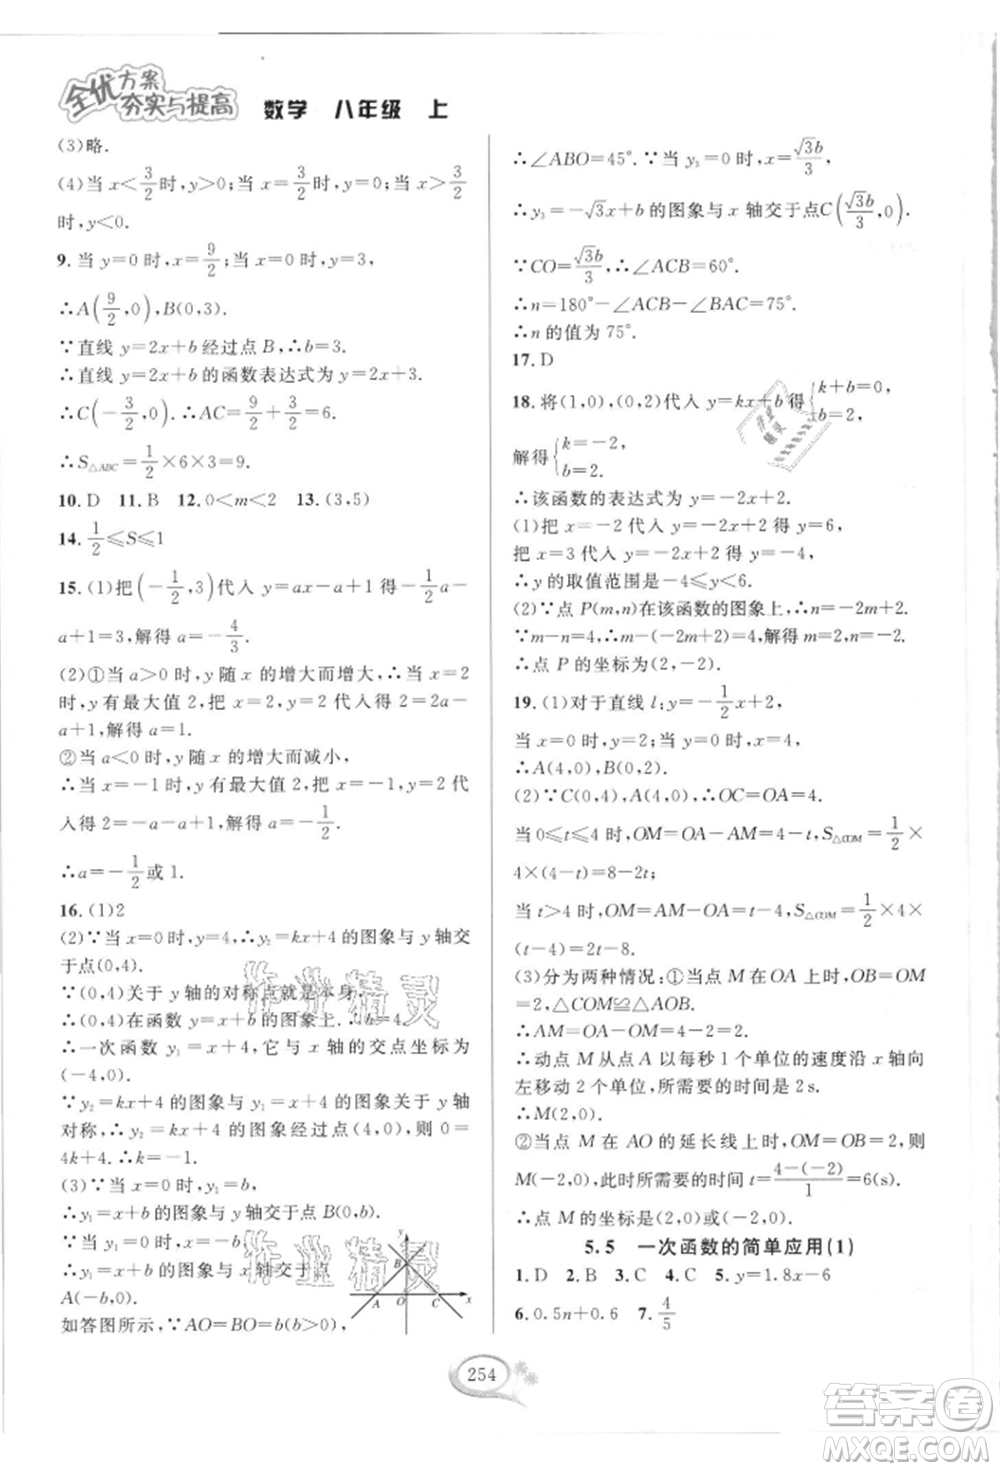 全优方案
夯实与提高
数学 八年级 上
(3)略.
(4)当 x<3/2时,y>0;当 x=3/2时,y=0;当 x>3/2
时,y<0.
9.当 y=0 时,x=9/2;当 x=0 时,y=3,
∴A(9/2,0),B(0,3).
∵直线 y=2x+b 经过点 B,∴b=3.
∴直线 y=2x+b 的函数表达式为 y=2x+3.
∴C(-3/2,0).∴AC=9/2+3/2=6.
∴S△ABC=1/2×6×3=9.
10.D 11.B 12.0<m<2 13.(3,5)
14.1/2≤S≤1
15.(1)把(-1/2,3)代入 y=ax-a+1 得-1/2a-
a+1=3,解得 a=-4/3.
(2)①当 a>0 时,y 随 x 的增大而增大,∴当 x=
2 时,y 有最大值 2,把 x=2,y=2 代入得 2=2a-
a+1,解得 a=1.
②当 a<0 时,y 随 x 的增大而减小,
∴当 x=-1 时,y 有最大值 2,把 x=-1,y=2 代
入得 2=-a-a+1,解得 a=-1/2.
∴a=-1/2或 1.
16.(1)2
(2)∵当 x=0 时,y=4,∴y₂=kx+4 的图象与 y轴交
于点(0,4).
∵(0,4)关于 y 轴的对称点就是本身,
∴(0,4)在函数 y₁=x+b 的图象上.∴b=4.
∴一次函数 y₁=x+4,它与 x 轴的交点坐标为
(-4,0).
∵y₂=kx+4 的图象与 y₁=x+4 的图象关于 y 轴
对称,∴y₂=kx+4 的图象经过点(4,0),则 0=
4k+4,∴k=-1.
(3)∵当 x=0 时,y₁=b,
∴y₁=x+b 的图象与 y 轴交于点B(0,b).
∵当 y₁=0 时,x=-b,
∴y₁=x+b 的图象与 x 轴交于点
A(-b,0).
如答图所示,∵AO=BO=b(b>0),
y
B
A O C x
∴∠ABO=45°.∵当 y₃=0 时,x=√3b/3,
∴y₃=-√3x+b 的图象与 x 轴交于点C(√3b/3,0).
∵CO=√3b/3,∴∠ACB=60°.
∴n=180°-∠ACB-∠BAC=75°.
∴n 的值为 75°.
17.D
18.将(1,0),(0,2)代入 y=kx+b 得{k+b=0, b=2,
解得{k=-2, b=2.
∴该函数的表达式为 y=-2x+2.
(1)把 x=-2 代入 y=-2x+2 得 y=6,
把 x=3 代入 y=-2x+2 得 y=-4,
∴y 的取值范围是-4≤y<6.
(2)∵点 P(m,n)在该函数的图象上,∴n=-2m+2.
∵m-n=4,∴m-(-2m+2)=4,解得 m=2,n=-2.
∴点 P 的坐标为(2,-2).
19.(1)对于直线 l:y=-1/2x+2,
当 x=0 时,y=2;当 y=0 时,x=4,
∴A(4,0),B(0,2).
(2)∵C(0,4),A(4,0),∴OC=OA=4.
当 0≤t≤4 时,OM=OA-AM=4-t,S△COM=1/2×
4×(4-t)=8-2t;
当 t>4 时,OM=AM-OA=t-4,S△COM=1/2×4×
(t-4)=2t-8.
(3)分为两种情况:①当点 M 在 OA 上时,OB=OM
=2,△COM≌△AOB.
∴AM=OA-OM=4-2=2.
∴动点 M 从点 A 以每秒 1 个单位的速度沿 x 轴向
左移动 2 个单位,所需要的时间是 2 s.
∴M(2,0).
②当点 M 在 AO 的延长线上时,OM=OB=2,则
M(-2,0).此时所需要的时间 t=4-(-2)/1=6(s).
∴点 M 的坐标是(2,0)或(-2,0).
5.5 一次函数的简单应用(1)
1.D 2.B 3.C 4.C 5.y=1.8x-6
6.0.5n+0.6 7.4/5
254
作业精灵
作业精灵
作业精灵
答案圈
MXQE.COM